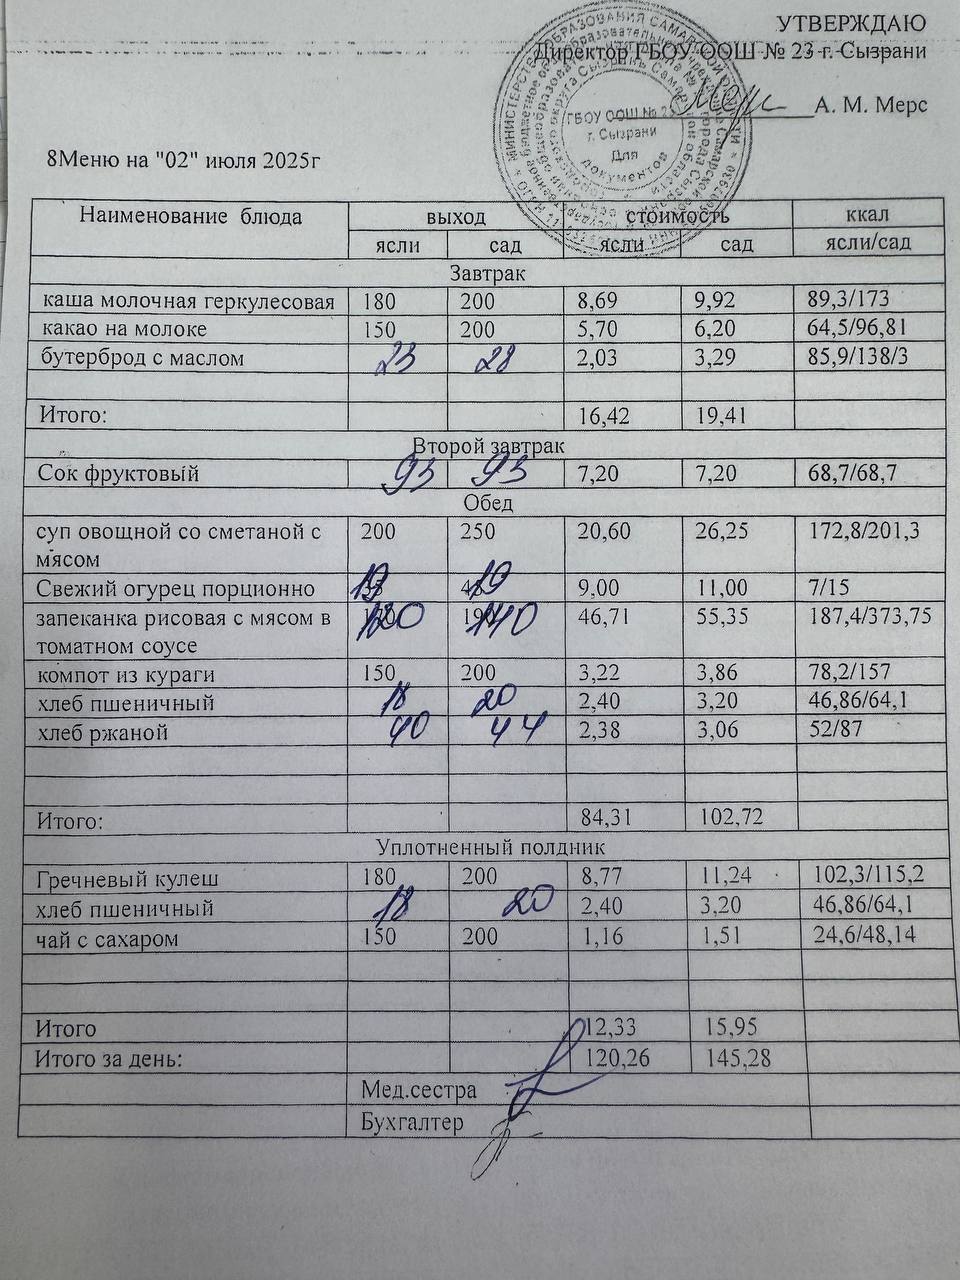 УТВЕРЖДАЮ
Директор ГБОУ ООШ № 23 г. Сызрани
А. М. Мерс
ГБОУ ООШ № 23
г. Сызрани
Для
документов
8Меню на "02" июля 2025г
Наименование блюда выход стоимость ккал
ясли сад ясли сад ясли/сад
Завтрак
каша молочная геркулесовая 180 200 8,69 9,92 89,3/173
какао на молоке 150 200 5,70 6,20 64,5/96,81
бутерброд с маслом 23 28 2,03 3,29 85,9/138/3
Итого: 16,42 19,41
Второй завтрак
Сок фруктовый 93 93 7,20 7,20 68,7/68,7
Обед
суп овощной со сметаной с 200 250 20,60 26,25 172,8/201,3
мясом
Свежий огурец порционно 19 19 9,00 11,00 7/15
запеканка рисовая с мясом в 120 140 46,71 55,35 187,4/373,75
томатном соусе
компот из кураги 150 200 3,22 3,86 78,2/157
хлеб пшеничный 18 20 2,40 3,20 46,86/64,1
хлеб ржаной 40 44 2,38 3,06 52/87
Итого: 84,31 102,72
Уплотненный полдник
Гречневый кулеш 180 200 8,77 11,24 102,3/115,2
хлеб пшеничный 18 20 2,40 3,20 46,86/64,1
чай с сахаром 150 200 1,16 1,51 24,6/48,14
Итого 12,33 15,95
Итого за день: 120,26 145,28
Мед.сестра
Бухгалтер